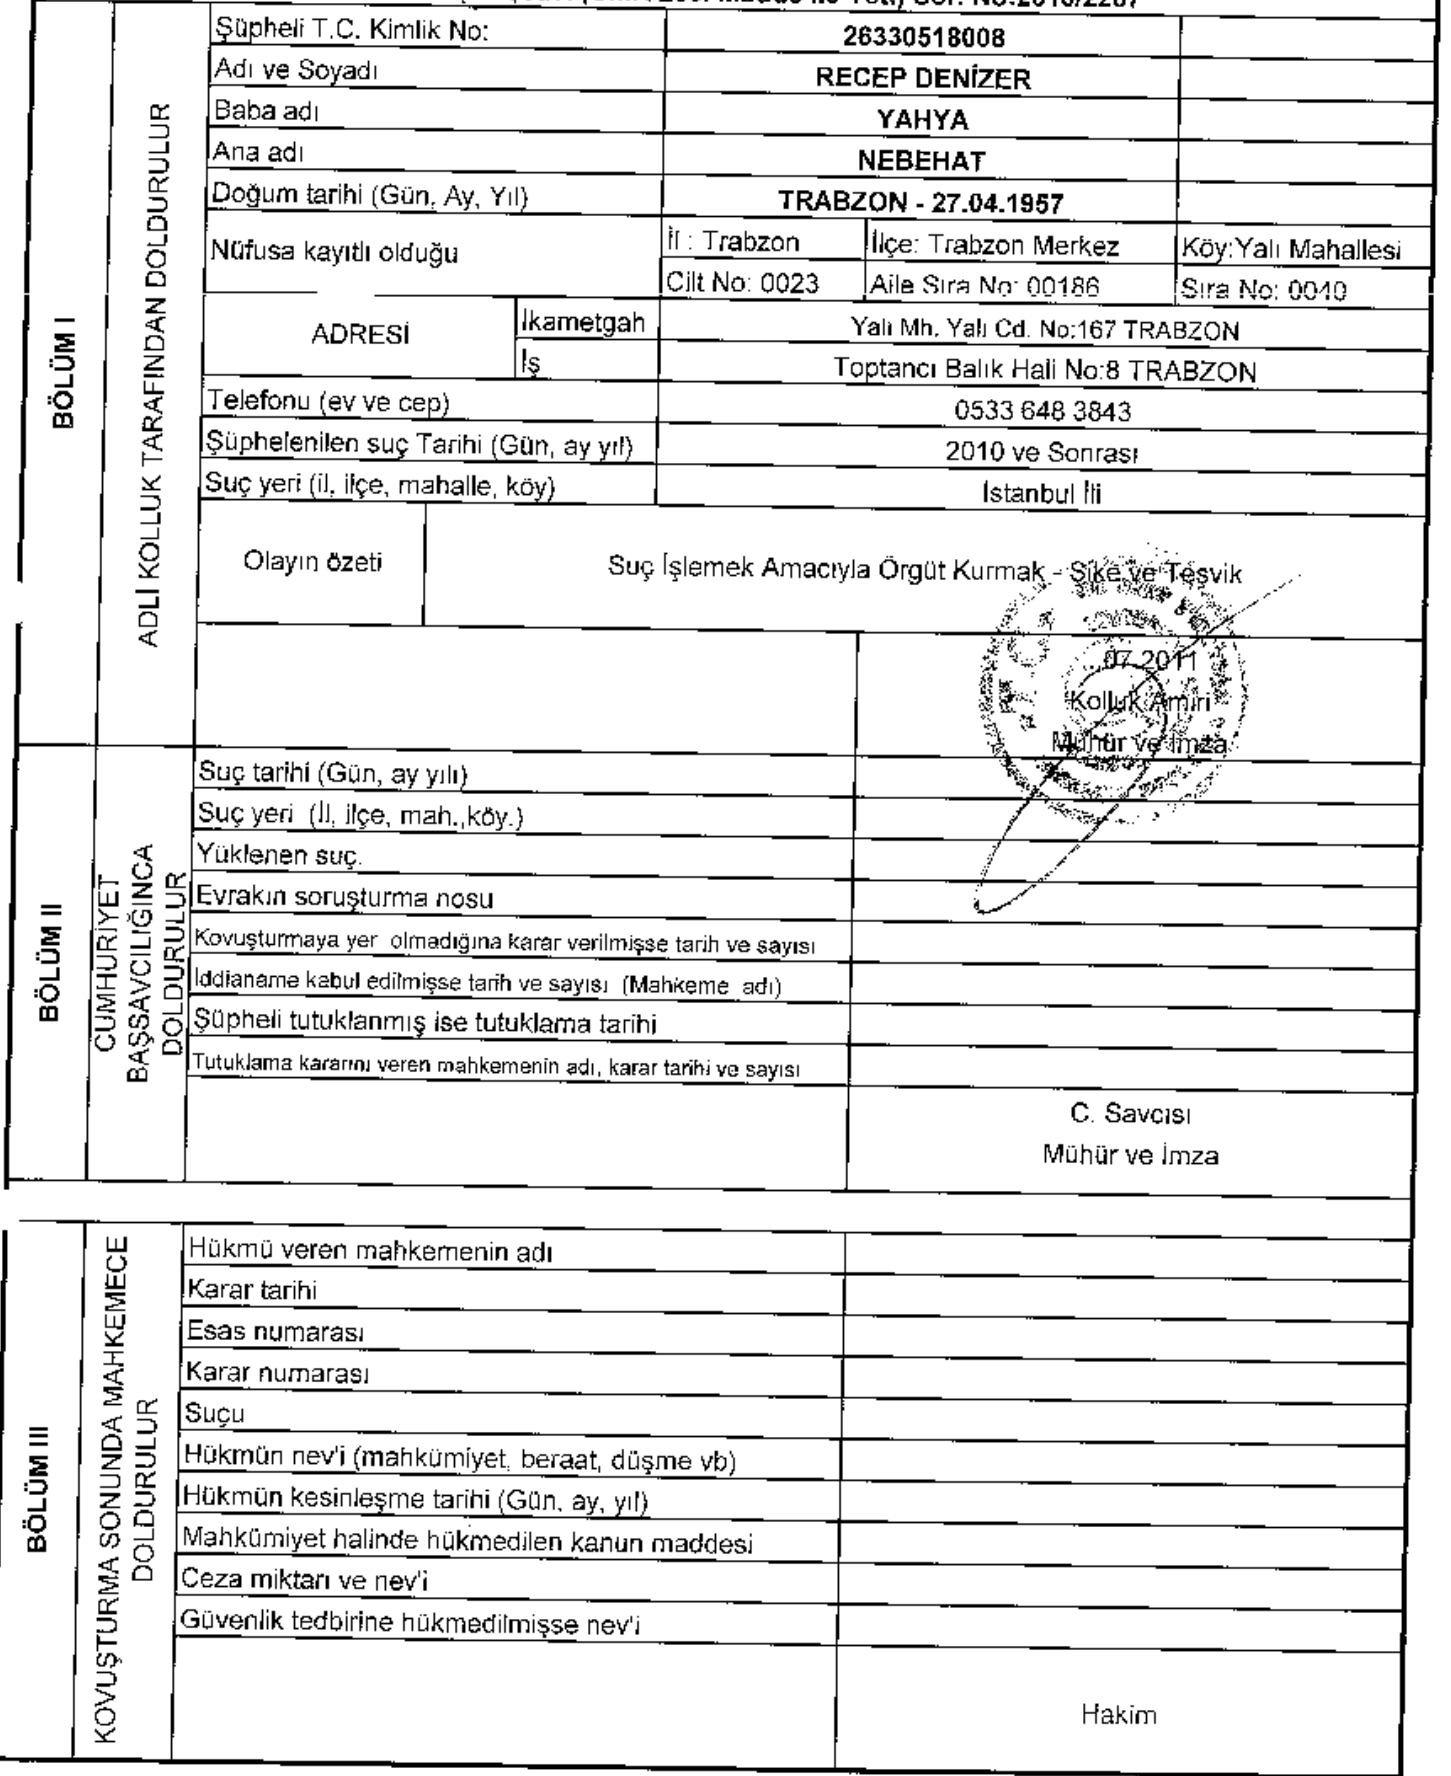 Şüpheli T.C. Kimlik No: 26330518008
Adı ve Soyadı RECEP DENİZER
Baba adı YAHYA
Ana adı NEBEHAT
Doğum tarihi (Gün, Ay, Yıl) TRABZON - 27.04.1957
Nüfusa kayıtlı olduğu
İl : Trabzon İlçe: Trabzon Merkez Köy:Yalı Mahallesi
Cilt No: 0023 Aile Sıra No: 00186 Sıra No: 0040
ADRESİ
İkametgah Yalı Mh. Yalı Cd. No:167 TRABZON
İş Toptancı Balık Hali No:8 TRABZON
Telefonu (ev ve cep) 0533 648 3843
Şüphelenilen suç Tarihi (Gün, ay yıl) 2010 ve Sonrası
Suç yeri (il, ilçe, mahalle, köy) İstanbul İli
Olayın özeti Suç İşlemek Amacıyla Örgüt Kurmak - Şike ve Teşvik
BÖLÜM I
ADLİ KOLLUK TARAFINDAN DOLDURULUR
..07.2011
Kolluk Amiri
Mühür ve İmza
BÖLÜM II
CUMHURİYET
BAŞSAVCILIĞINCA
DOLDURULUR
Suç tarihi (Gün, ay yılı)
Suç yeri (İl, ilçe, mah.,köy.)
Yüklenen suç.
Evrakın soruşturma nosu
Kovuşturmaya yer olmadığına karar verilmişse tarih ve sayısı
İddianame kabul edilmişse tarih ve sayısı (Mahkeme adı)
Şüpheli tutuklanmış ise tutuklama tarihi
Tutuklama kararını veren mahkemenin adı, karar tarihi ve sayısı
C. Savcısı
Mühür ve İmza
BÖLÜM III
KOVUŞTURMA SONUNDA MAHKEMECE
DOLDURULUR
Hükmü veren mahkemenin adı
Karar tarihi
Esas numarası
Karar numarası
Suçu
Hükmün nev'i (mahkümiyet, beraat, düşme vb)
Hükmün kesinleşme tarihi (Gün, ay, yıl)
Mahkümiyet halinde hükmedilen kanun maddesi
Ceza miktarı ve nev'i
Güvenlik tedbirine hükmedilmişse nev'i
Hakim